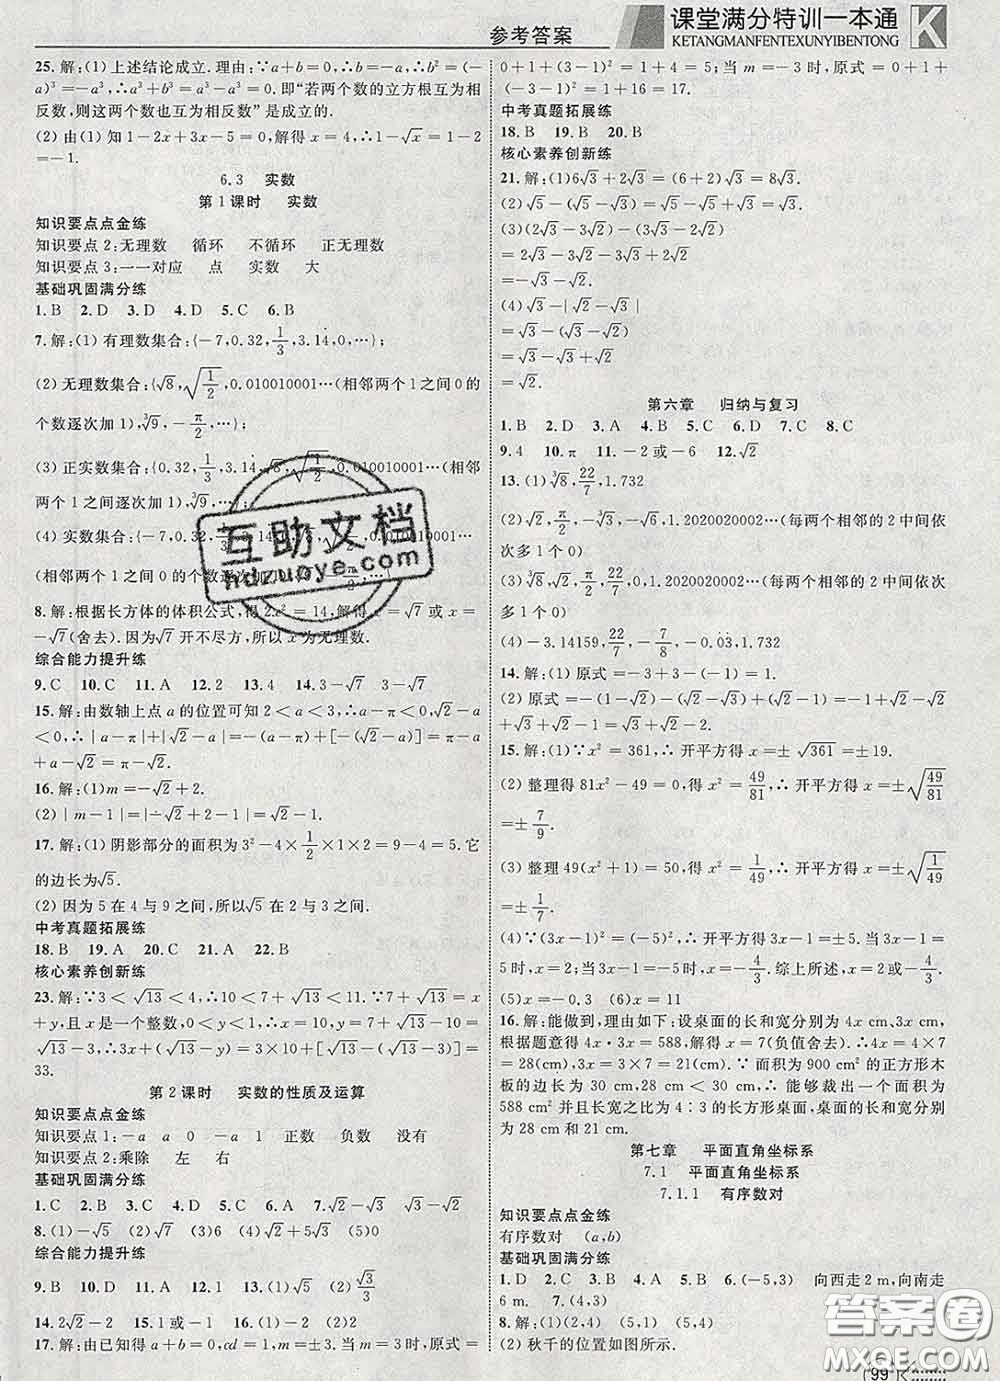 参考答案
课堂满分特训一本通
KETANGMANFENTEXUNYIBENTONG
25.解:(1)上述结论成立.理由:∵a+b=0,∴b=-a,∴b³=(-
a)³=-a³,∴a³+b³=a³-a³=0.即“若两个数的立方根互为相
反数,则这两个数也互为相反数”是成立的.
(2)由(1)知1-2x+3x-5=0,解得x=4,∴1-√x=1-2
=-1.
6.3 实数
第1课时 实数
知识要点点金练
知识要点2:无理数 循环 不循环 正无理数
知识要点3:一一对应 点 实数 大
基础巩固满分练
1.B 2.D 3.D 4.D 5.C 6.B
7.解:(1)有理数集合:{-7,0.32,1/3,3.14,0,…};
(2)无理数集合:{√8,√(1/2),0.010010001…(相邻两个1之间0的
个数逐次加1),∛9,-π/2,…};
(3)正实数集合:{0.32,1/3,3.14,√8,√(1/2),0.010010001…(相邻
两个1之间逐次加1),∛9,…};
(4)实数集合:{-7,0.32,
(相邻两个1之间0的个数逐次加1)
8.解:根据长方体的体积公式,得2x²=14,解得x=√7或x=
-√7(舍去).因为√7开不尽方,所以x为无理数.
综合能力提升练
9.C 10.C 11.A 12.2 13.4 14.3-√7 3-√7
15.解:由数轴上点a的位置可知2<a<3,∴a-π<0,√2-a
<0,∴|a-π|+|√2-a|=-(a-π)+[-(√2-a)]=π-a
+a-√2=π-√2.
16.解:(1)m=-√2+2.
(2)|m-1|=|-√2+2-1|=√2-1.
17.解:(1)阴影部分的面积为3²-4×1/2×1×2=9-4=5.它
的边长为√5.
(2)因为5在4与9之间,所以√5在2与3之间.
中考真题拓展练
18.B 19.A 20.C 21.A 22.B
核心素养创新练
23.解:∵3<√13<4,∴10<7+√13<11,∵7+√13=x
+y,且x是一个整数,0<y<1,∴x=10,y=7+√13-10=
√13-3,∴3x+(√13-y)=3×10+[√13-(√13-3)]=
33.
第2课时 实数的性质及运算
知识要点点金练
知识要点1:-a a 0 -a 1 正数 负数 没有
知识要点2:乘除 左 右
基础巩固满分练
1.C 2.D 3.B 4.C 5.A 6.1 7.√2-√3 √3-√2
8.(1)-√5 (2)√7 (3)6 (4)√2+5√3 (5)0
综合能力提升练
9.B 10.D 11.A 12.1 13.(1)√5 (2)√3/3
14.2√2-2 15.1或-√3 16.(1)-2 (2)2
17.解:由已知得a+b=0,cd=1,m=±3,当m=3时,原式=
0+1+(3-1)²=0+1+4=5;当m=-3时,原式=0+1+
(-3-1)²=0+1+16=17.
中考真题拓展练
18.B 19.B 20.B
核心素养创新练
21.解:(1)6√3+2√3=(6+2)√3=8√3.
(2)√5-(√5-√3)=√5-√5+√3=√3.
(3)(2√3-3√2)-(3√3-2√2)
=2√3-3√2-3√3+2√2
=-√3-√2.
(4)√3-|√2-√3|
=√3-(√3-√2)
=√3-√3+√2
=√2.
第六章 归纳与复习
1.B 2.D 3.A 4.B 5.C 6.D 7.C 8.C
9.4 10.π 11.-2或-6 12.√2
13.(1)∛8,22/7,1.732
(2)√2,π/2,-∛3,-√6,1.2020020002…(每两个相邻的2中间依
次多1个0)
(3)∛8,√2,π/2,22/7,0,1.2020020002…(每两个相邻的2中间依次
多1个0)
(4)-3.14159,22/7,-7/8,-0.03,1.732
14.解:(1)原式=-3+3-(-1)=1.
(2)原式=-(1-√2)-(√2-√3)-(√3-2)=-1+√2-√2
+√3-√3+2=1.
15.解:(1)∵x²=361,∴开平方得x=±√361=±19.
(2)整理得81x²-49=0,得x²=49/81,∴开平方得x=±√(49/81)
=±7/9.
(3)整理49(x²+1)=50,得x²=1/49,∴开平方得x=±√(1/49)=
±1/7.
(4)∵(3x-1)²=(-5)²,∴开平方得3x-1=±5.当3x-1=
5时,x=2;当3x-1=-5时,x=-4/3.综上所述,x=2或-4/3.
(5)x=-0.3 (6)x=11
16.解:能做到,理由如下:设桌面的长和宽分别为4x cm、3x cm,
根据题意得4x·3x=588,解得x=7(负值舍去).∴4x=4×7
=28(cm),3x=3×7=21(cm).∵面积为900 cm²的正方形木
板的边长为30 cm,28 cm<30 cm,∴能够裁出一个面积为
588 cm²并且长宽之比为4∶3的长方形桌面,桌面长宽分别
为28 cm和21 cm.
第七章 平面直角坐标系
7.1 平面直角坐标系
7.1.1 有序数对
知识要点点金练
有序数对 (a,b)
基础巩固满分练
1.D 2.C 3.A 4.C 5.B 6.(-5,3) 向西走2 m,向南走
6 m. 7.(4,3)
8.解:(1)(2,4) (5,1) (5,4)
(2)秋千的位置如图所示.
99
互助文档
hdzuoye.com
答案圈
MXQE.COM